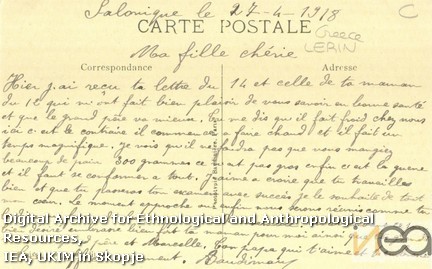 Salonique le 27-4-1918
C
CARTE POSTALE
Greece
LERIN
Ma fille chérie
Correspondance
Adresse
Hier j'ai reçu ta lettre du 14 et celle de ta maman
du 16 qui m'ont fait bien plaisir de vous savoir en bonne santé
et que le grand père va mieux, tu me dis qu'il fait froid chez nous
ici c'est le contraire il commence a faire chaud et il fait un
temps magnifique, je vois qu'il ne pas que vous mangiez
beaucoup de pain 300 grammes ce pas gros enfin c'est la guerre
et il faut se conformer a tout, j'aime a croire que tu travailles
bien et que tu passeras ton avec succès je le souhaite de tout
mon cœur le moment approche
bien embrasse bien fort ta maman pour moi ainsi que
père et Marcelle, ton papa qui t'aime
Digital Archive for Ethnological and Anthropological
Resources,
IEA, UKIM in Skopje
iea